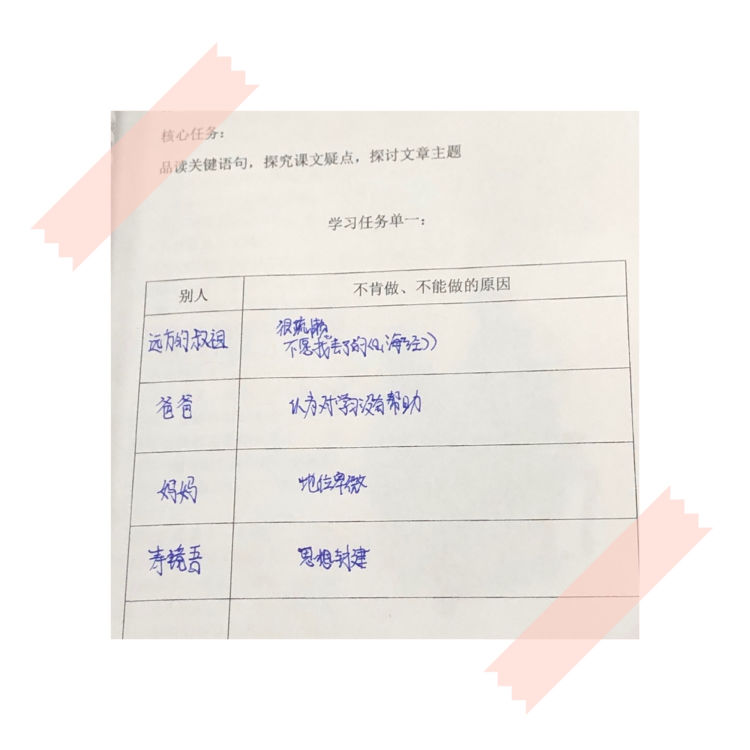 核心任务：
品读关键语句，探究课文疑点，探讨文章主题
学习任务单一：
别人 不肯做、不能做的原因
远方的叔祖 很疏懒
不愿我丢了的《山海经》
爸爸 认为对学习没有帮助
妈妈 地位卑微
寿镜吾 思想封建